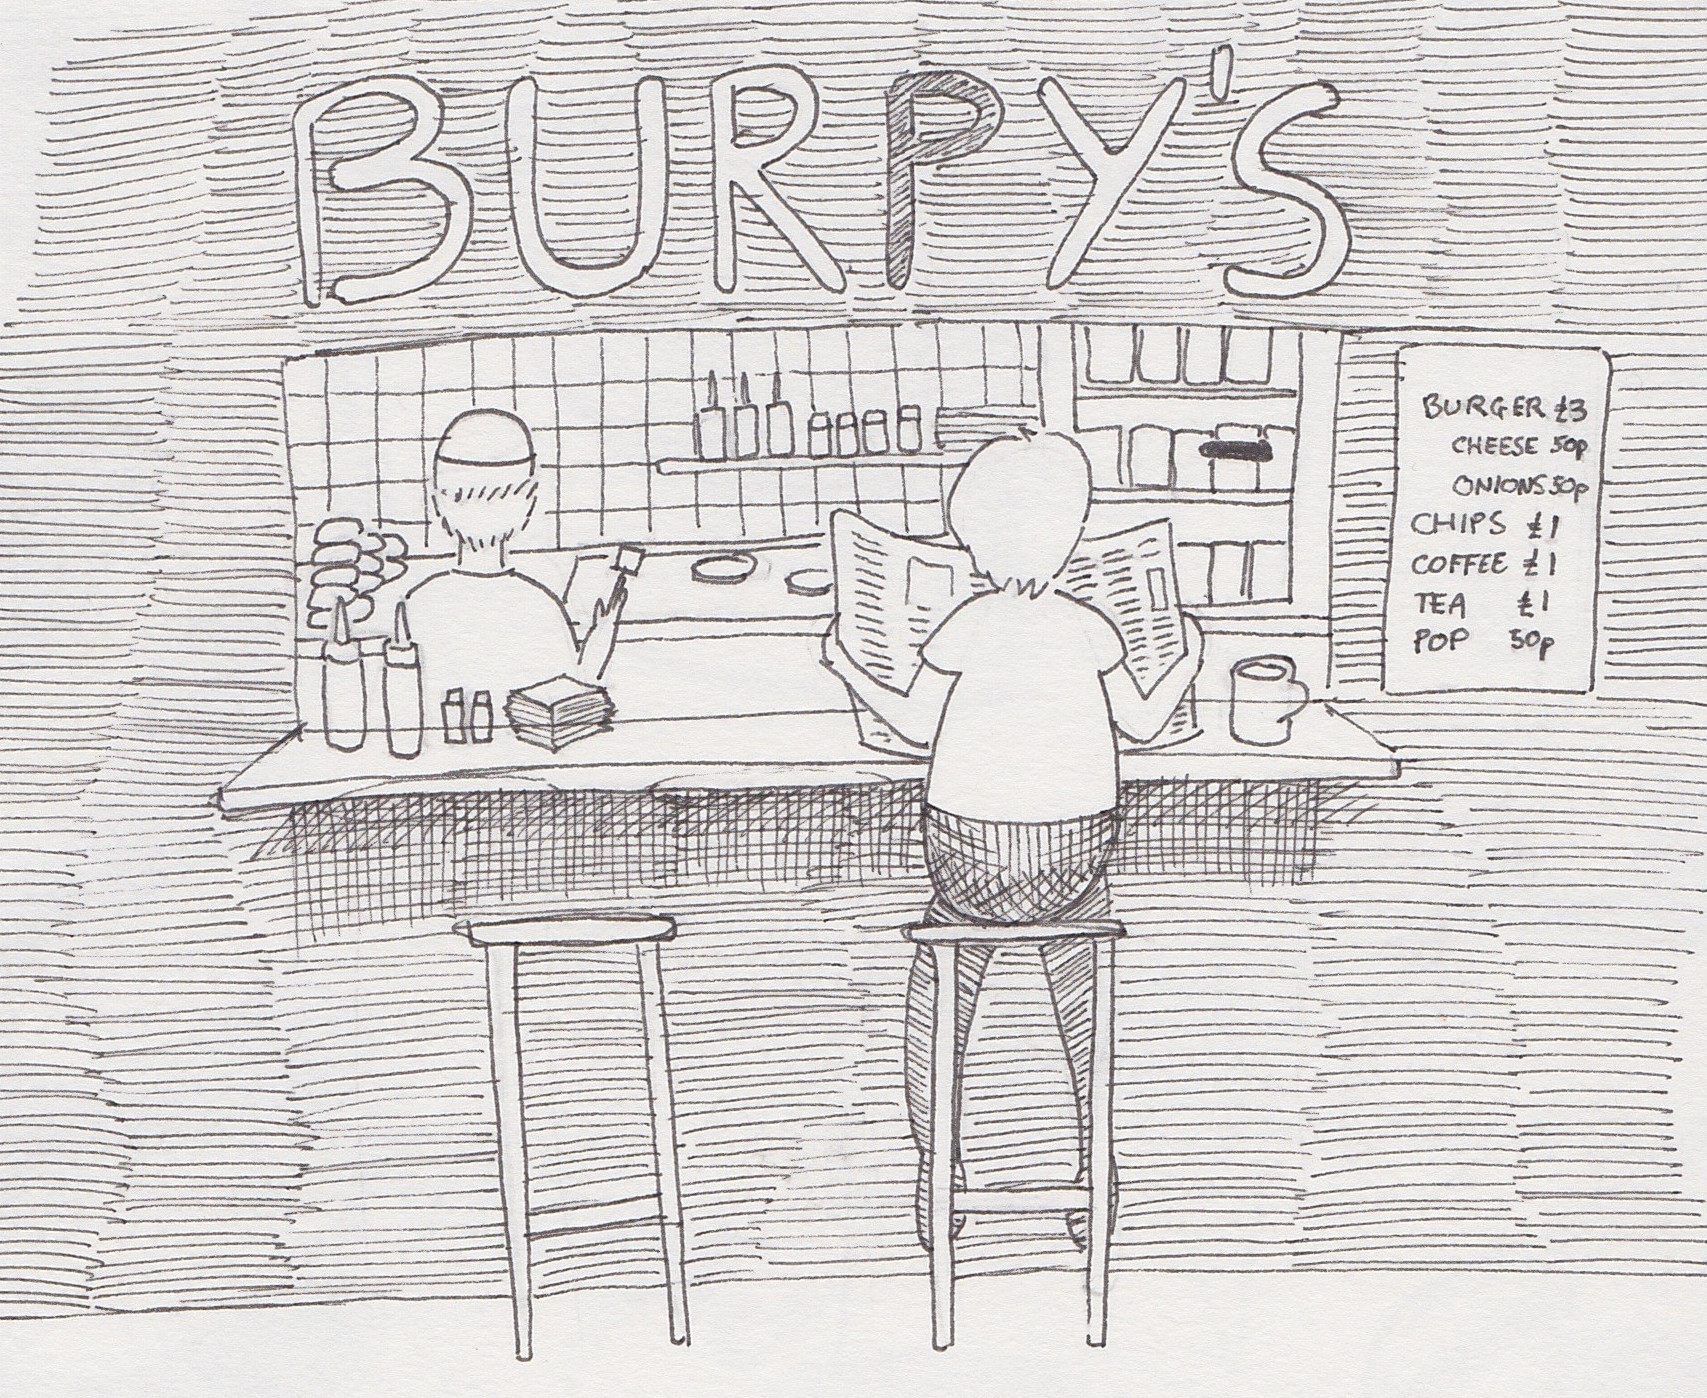 BURPY'S
BURGER £3
CHEESE 50p
ONIONS 50p
CHIPS £1
COFFEE £1
TEA £1
POP 50p